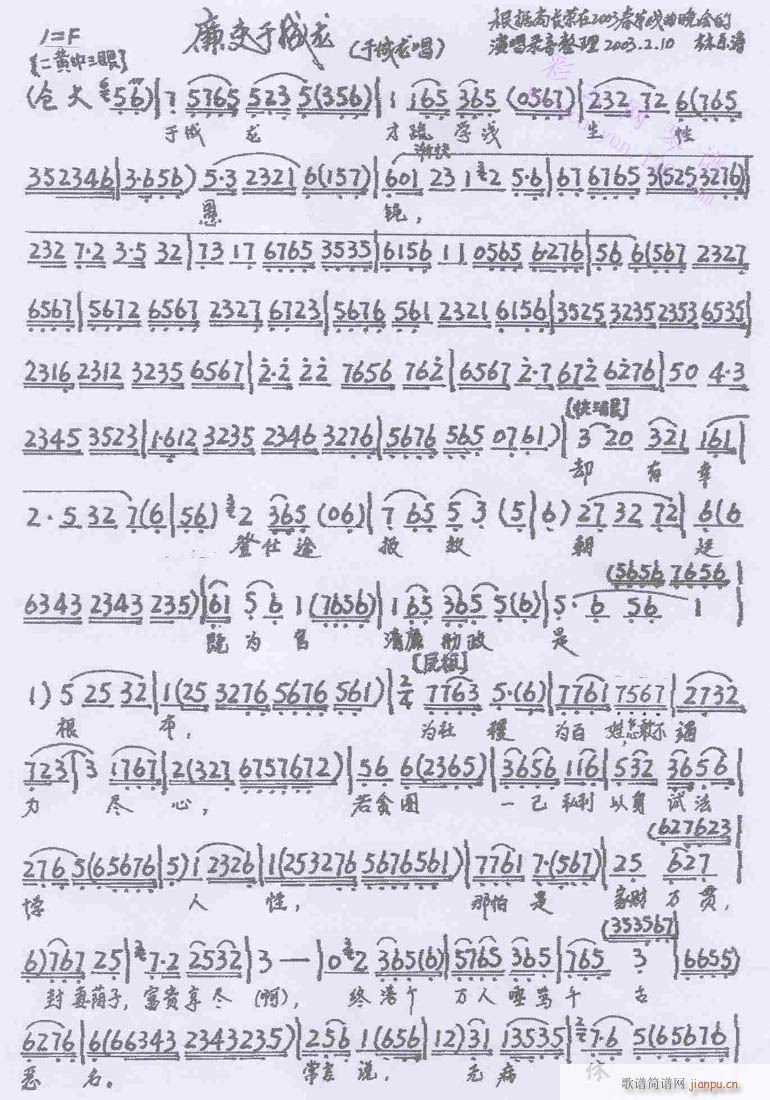 1=F 廉吏于成龙 根据尚长荣在2003春节戏曲晚会的
【二黄中三眼】 (于成龙唱) 演唱录音整理 2003.2.10
(仓 大 56)| 7 5765 523 5(356)| 1 165 365 (0567)| 232 72 6(765
于成 龙 才疏 学浅 生 性
渐快
352346|3·656) 5·3 2321 6(157)|601 23 1 2 5·6|67 6765 3(5253276)|
愚 钝,
232 7·2 3·5 32|73 17 6765 3535|6156 11 0565 6276|56 6(567 2327
6567|5672 6567 2327 6723|5676 561 2321 6156|3525 3235 2353 6535|
2316 2312 3235 6567|2·2 22 7656 762|6567 2·7 672 6276|50 4·3
【快三眼】
2345 3523|1·612 3235 2346 3276|5676 565 0761)|3 20 321 161|
却 有 幸
2·5 32 7(6|56) 2 365 (06)|7 65 5 3 (5|6) 27 32 72|6(6
登 仕途 报效 朝 廷
(5656 7656|
6343 2343 235)|61 5 6 1(7656)|1 65 365 5(6)|5· 6 56 1
既 为 官 清廉 勤政 是
【原板】
1) 5 25 32|1(25 3276 5676 561)|2/4 7763 5·(6)|7761 7567|2732
根 本, 为社 稷 为百 姓,怎敢不 竭
723|3 1767|2(327 6757672)|56 6(2365)|3656 116|532 3656|
力 尽 心, 若贪图 一己 私利 以身 试法
(627623|
276 5(65676|5) 1 2326|1(253276 5676561)|7761 7·(567)|25 627
悖 人 性, 那怕 是 家财 万贯,
(353567|
6)767 25|7·2 2532|3 —|0 2 365(6)|5765 365|765 3 (6655)
封妻荫子, 富贵享尽 (啊), 终落个 万人 唾骂 千 古
6276|6(66343 2343235)|256 1(656|12)31 13535|7·6 5(65676
恶 名。 常言 说, 无病 休
歌谱简谱网 jianpu.cn